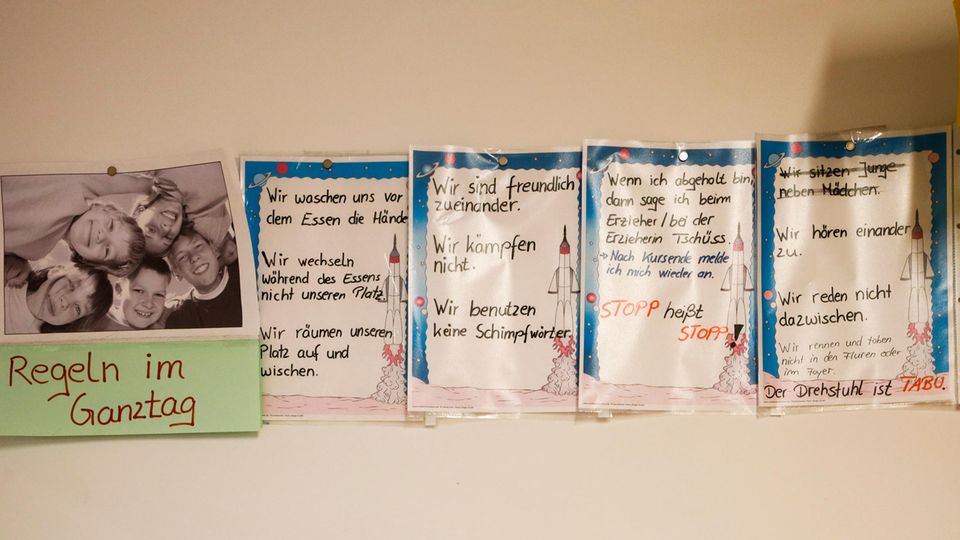 Regeln im
Ganztag
Wir waschen uns vor
dem Essen die Hände
Wir wechseln
während des Essens
nicht unseren Platz.
Wir räumen unseren
Platz auf und
wischen.
Wir sind freundlich
zueinander.
Wir kämpfen
nicht.
Wir benutzen
keine Schimpfwörter.
Wenn ich abgeholt bin,
dann sage ich beim
Erzieher/bei der
Erzieherin Tschüss.
→ Nach Kursende melde
ich mich wieder an.
STOPP heißt
STOPP!
Wir sitzen Junge
neben Mädchen.
Wir hören einander
zu.
Wir reden nicht
dazwischen.
Wir rennen und toben
nicht in den Fluren oder
im Foyer.
Der Drehstuhl ist TABU.